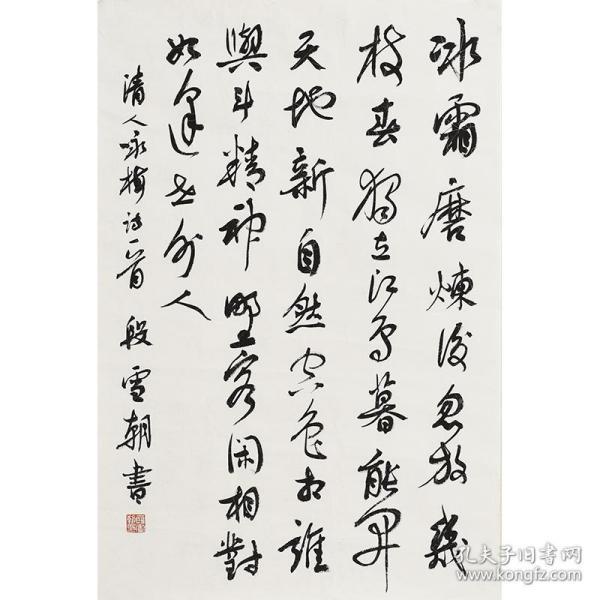 冰霜磨煉後忽放幾
枝春獨立江暮能開
天地新自然空色相誰
與斗精神野客闲相對
如逢世外人
清人咏梅诗一首 段雪朝書
孔夫子旧书网
www.kongfz.com